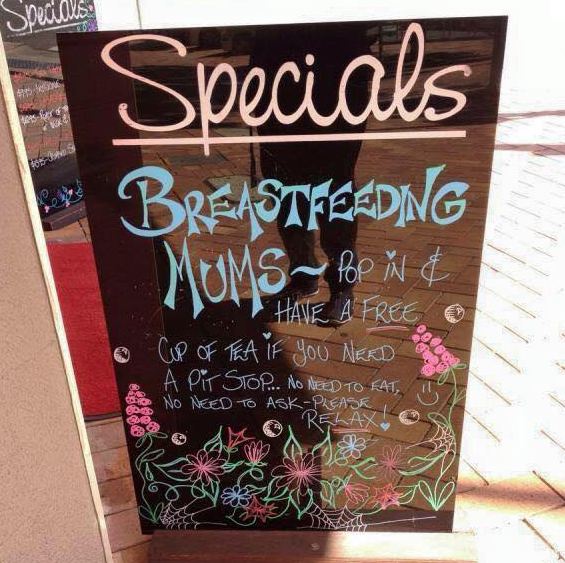 Specials
Specials
BREASTFEEDING
MUMS ~ POP IN &
HAVE A FREE
CUP OF TEA IF YOU NEED
A PIT STOP... NO NEED TO EAT,
NO NEED TO ASK - PLEASE
RELAX!